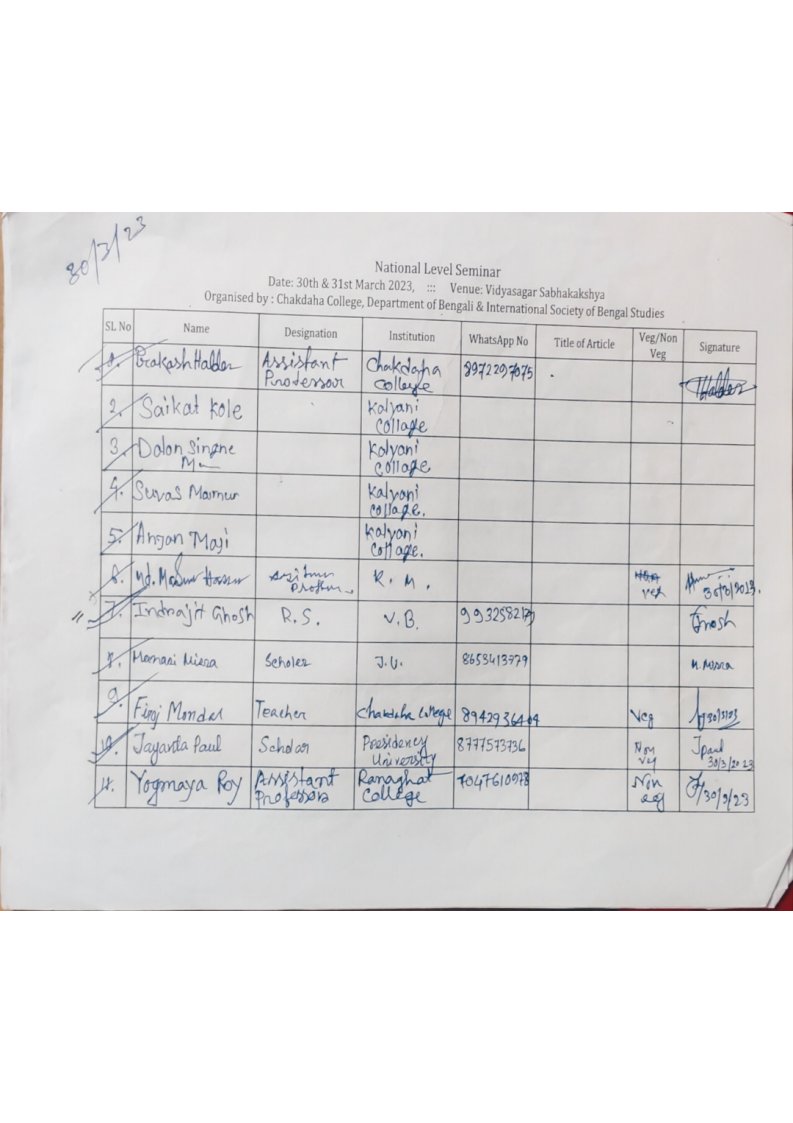 30/3/23
National Level Seminar
Date: 30th & 31st March 2023, ::: Venue: Vidyasagar Sabhakakshya
Organised by : Chakdaha College, Department of Bengali & International Society of Bengal Studies
SL No Name Designation Institution WhatsApp No Title of Article Veg/Non Veg Signature
1. Prakash Halder Assistant Professor Chakdaha College 8972297075 Halder
2. Saikat Kole Kalyani collage
3. Dolon Kalyani collage
4. Suvas Kalyani collage.
5. Anjan Maji Kalyani collage.
6. Md. K. M. veg 30/3/2023.
7. Indrajit Ghosh R.S. V.B. Ghosh
8. Mamani Misra Scholer J.U. 8653413779 M. Misra
9. Firoj Mondal Teacher Chakdaha College Veg
10. Jayanta Paul Scholar Presidency University 8777573736 Non veg Jpaul 30/3/2023
11. Yogmaya Roy Assistant Professor Ranaghat College 7047610978 Non veg 30/3/23